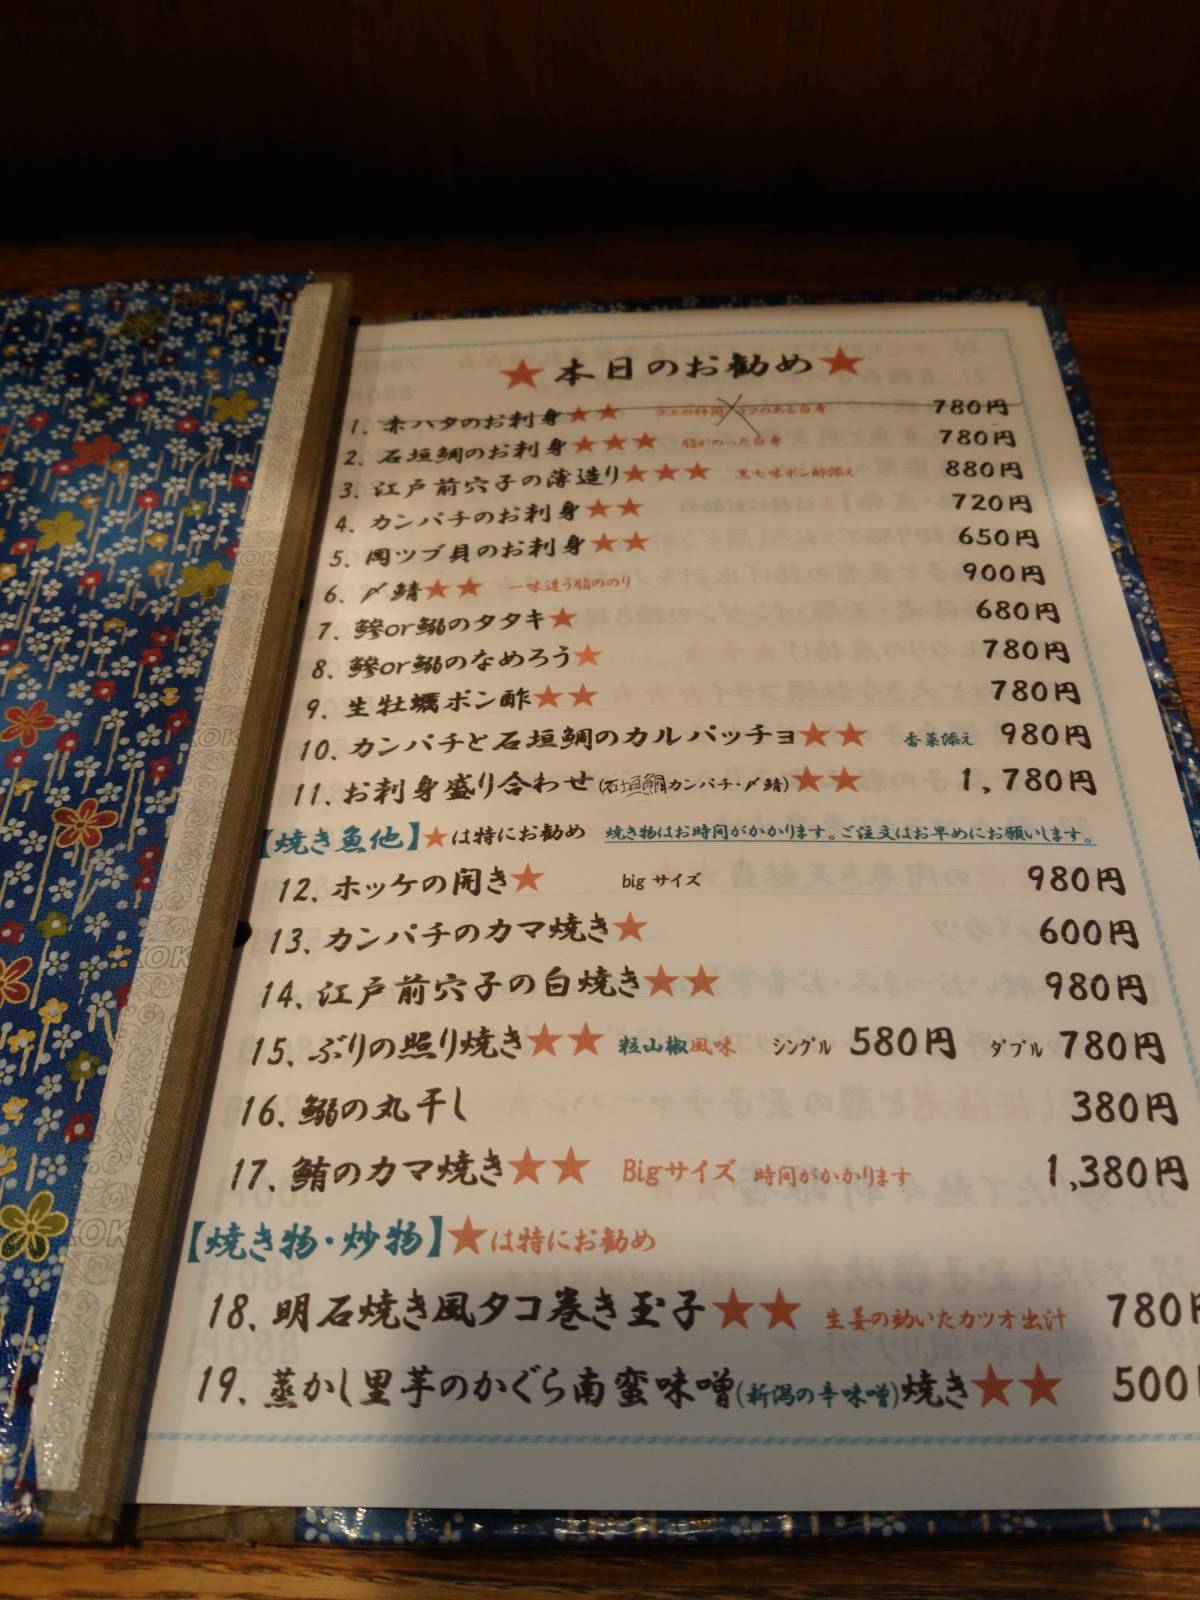 ★本日のお勧め★
1、赤ハタのお刺身★★ クエの仲間 コクのある白身 780円
2、石垣鯛のお刺身★★★ 脂がのった白身 780円
3、江戸前穴子の薄造り★★★ 黒七味ポン酢添え 880円
4、カンパチのお刺身★★ 720円
5、岡ツブ貝のお刺身★★ 650円
6、〆鯖★★ 一味違う脂ののり 900円
7、鰺or鰯のタタキ★ 680円
8、鰺or鰯のなめろう★ 780円
9、生牡蠣ポン酢★★ 780円
10、カンパチと石垣鯛のカルパッチョ★★ 香菜添え 980円
11、お刺身盛り合わせ(石垣鯛カンパチ・〆鯖)★★ 1,780円
【焼き魚他】★は特にお勧め 焼き物はお時間がかかります。ご注文はお早めにお願いします。
12、ホッケの開き★ bigサイズ 980円
13、カンパチのカマ焼き★ 600円
14、江戸前穴子の白焼き★★ 980円
15、ぶりの照り焼き★★ 粒山椒風味 シングル 580円 ダブル 780円
16、鰯の丸干し 380円
17、鮪のカマ焼き★★ Bigサイズ 時間がかかります 1,380円
【焼き物・炒物】★は特にお勧め
18、明石焼き風タコ巻き玉子★★ 生姜の効いたカツオ出汁 780円
19、蒸かし里芋のかぐら南蛮味噌(新潟の辛味噌)焼き★★ 500